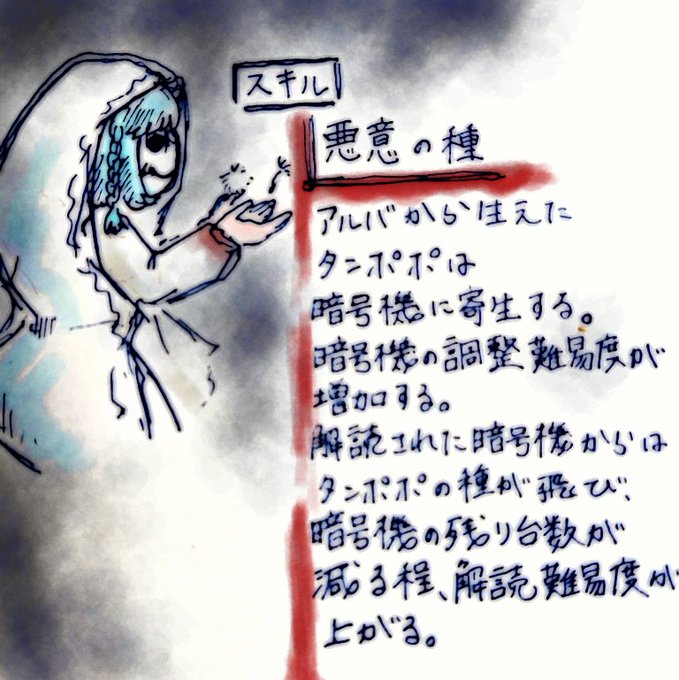 スキル
悪意の種
アルバから生えた
タンポポは
暗号機に寄生する。
暗号機の調整難易度が
増加する。
解読された暗号機からは
タンポポの種が飛び、
暗号機の残り台数が
減る程、解読難易度が
上がる。